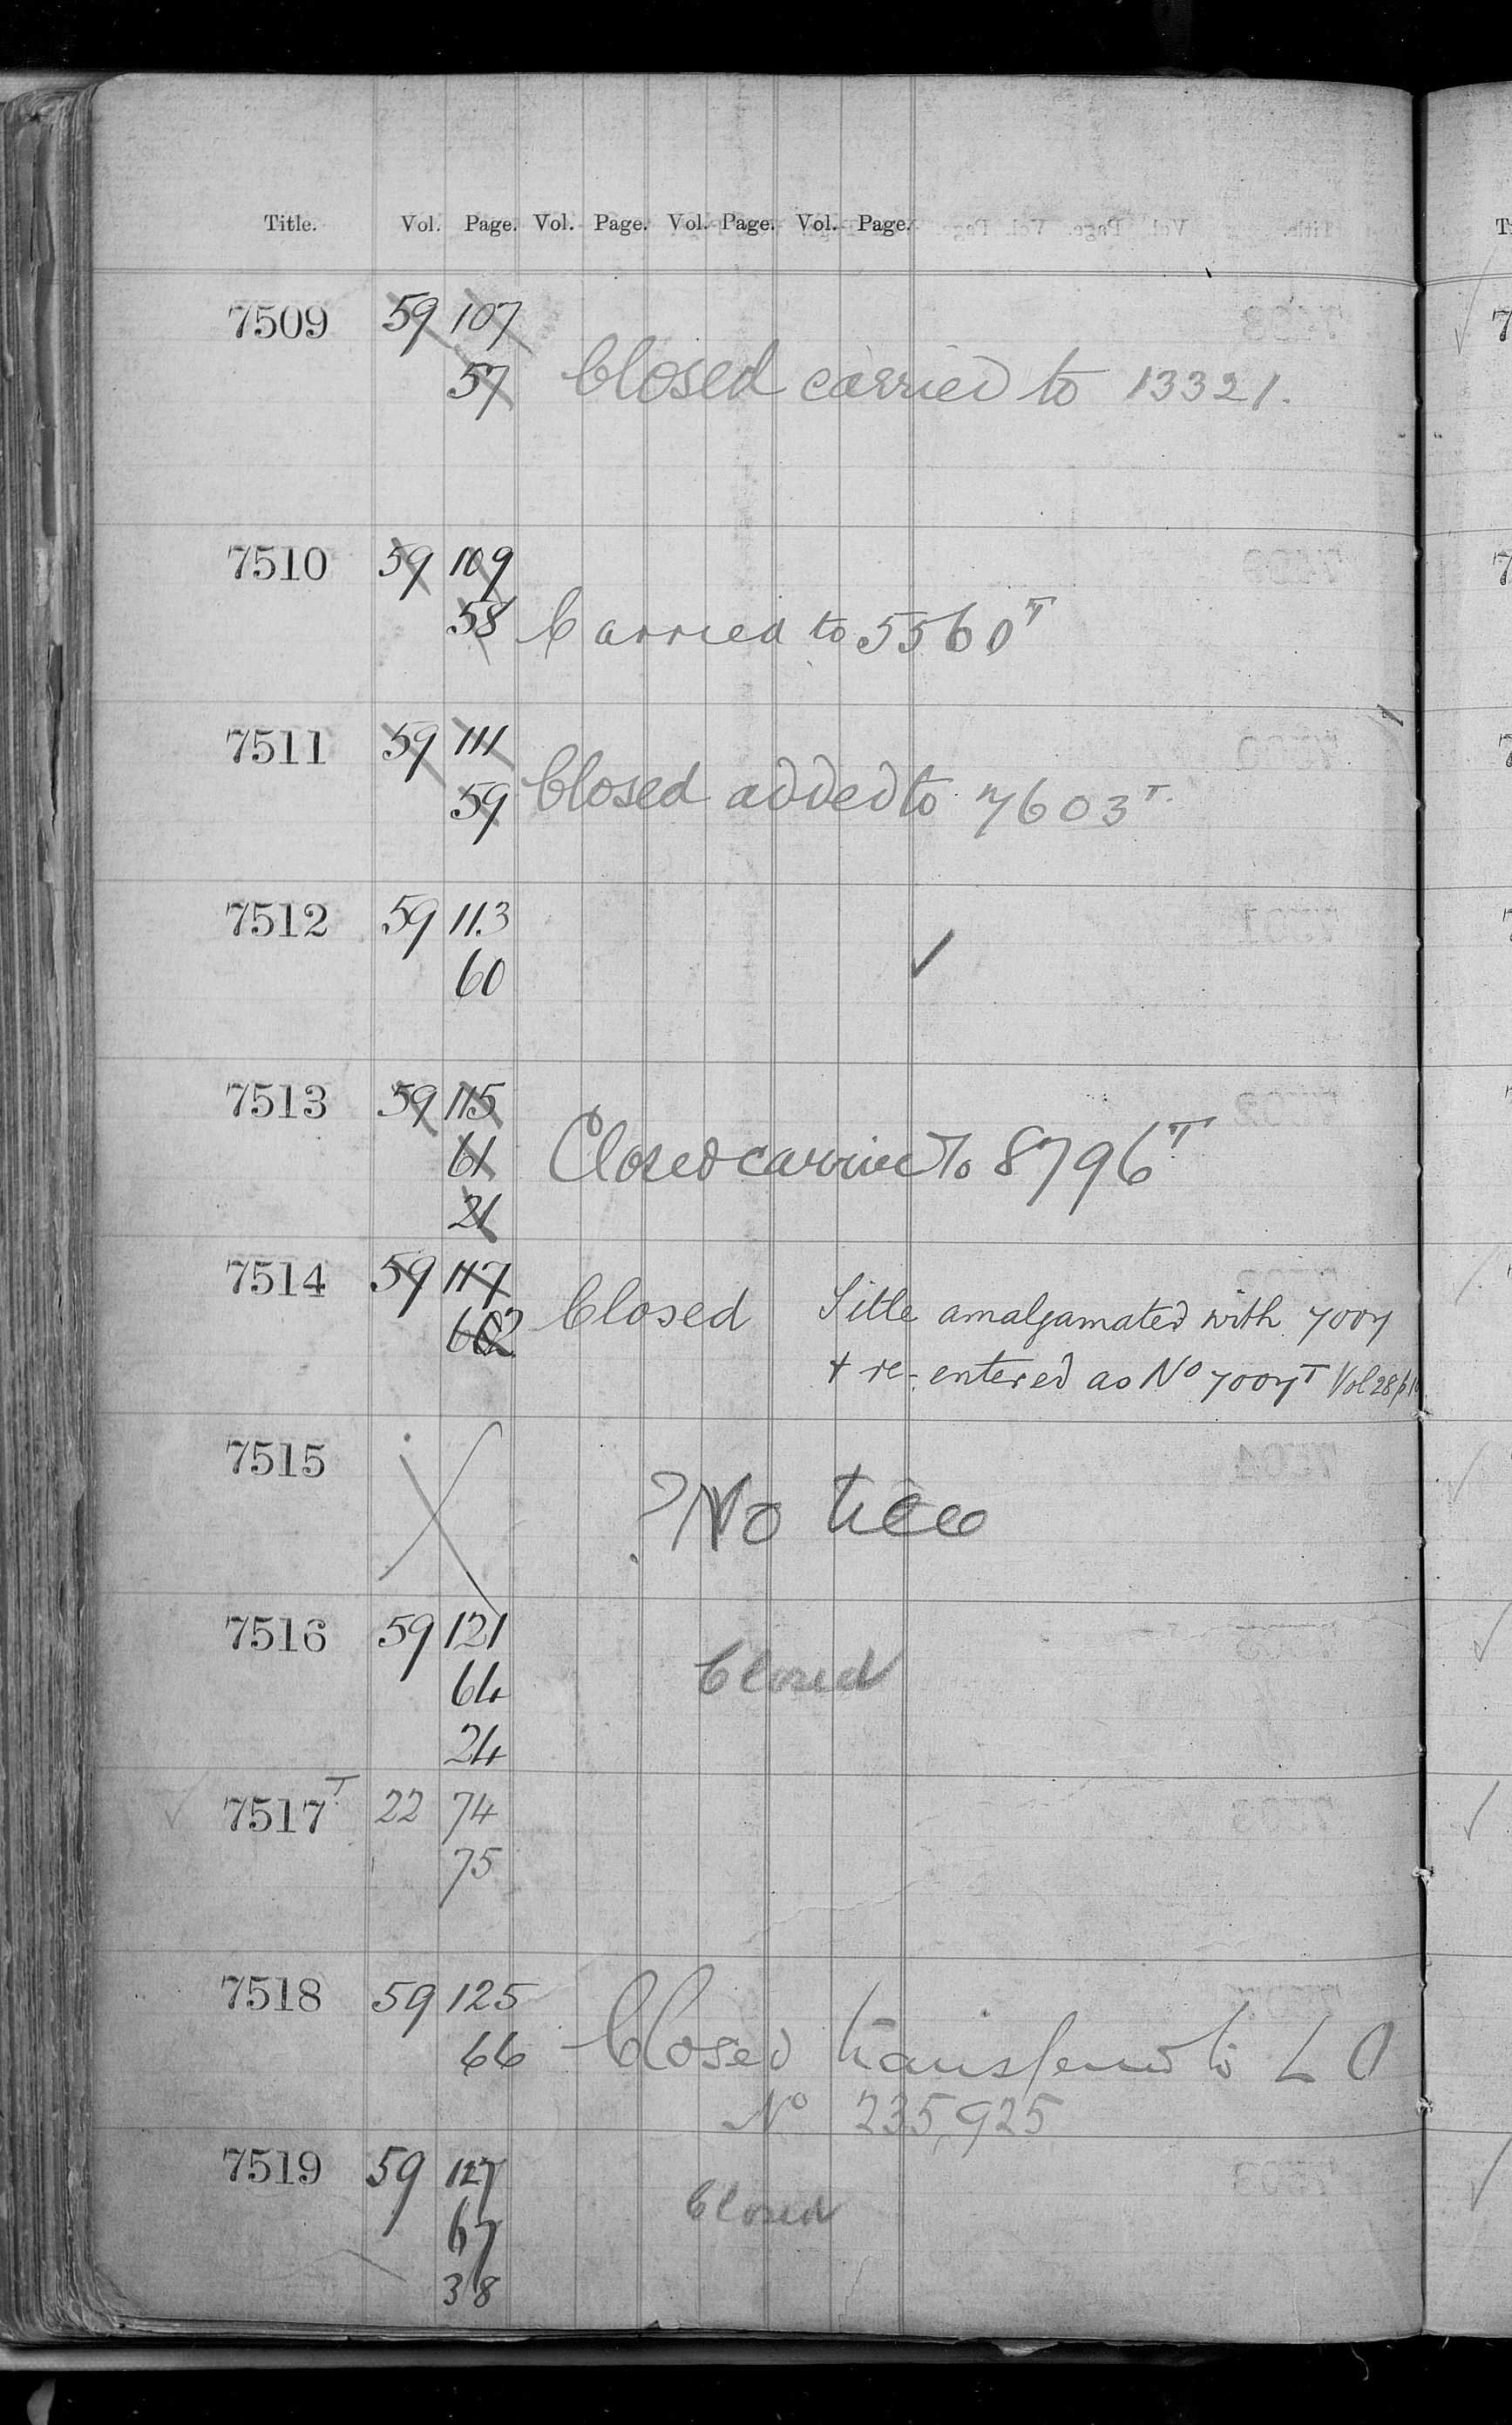 Title. Vol. Page. Vol. Page. Vol. Page. Vol. Page.
7509 59 107
57 Closed carried to 13321.
7510 59 109
58 Carried to 5560T
7511 59 111
59 Closed added to 7603T
7512 59 113
60 ✓
7513 59 115
61 Closed carried to 8796T
21
7514 59 117 Closed Title amalgamated with 7007
62 + re-entered as No 7007T Vol 28 p
7515 ? No
7516 59 121
64 Closed
24
7517T 22 74
75
7518 59 125
66 Closed transferred to L O
No 235,925
7519 59 127
67 Closed
38